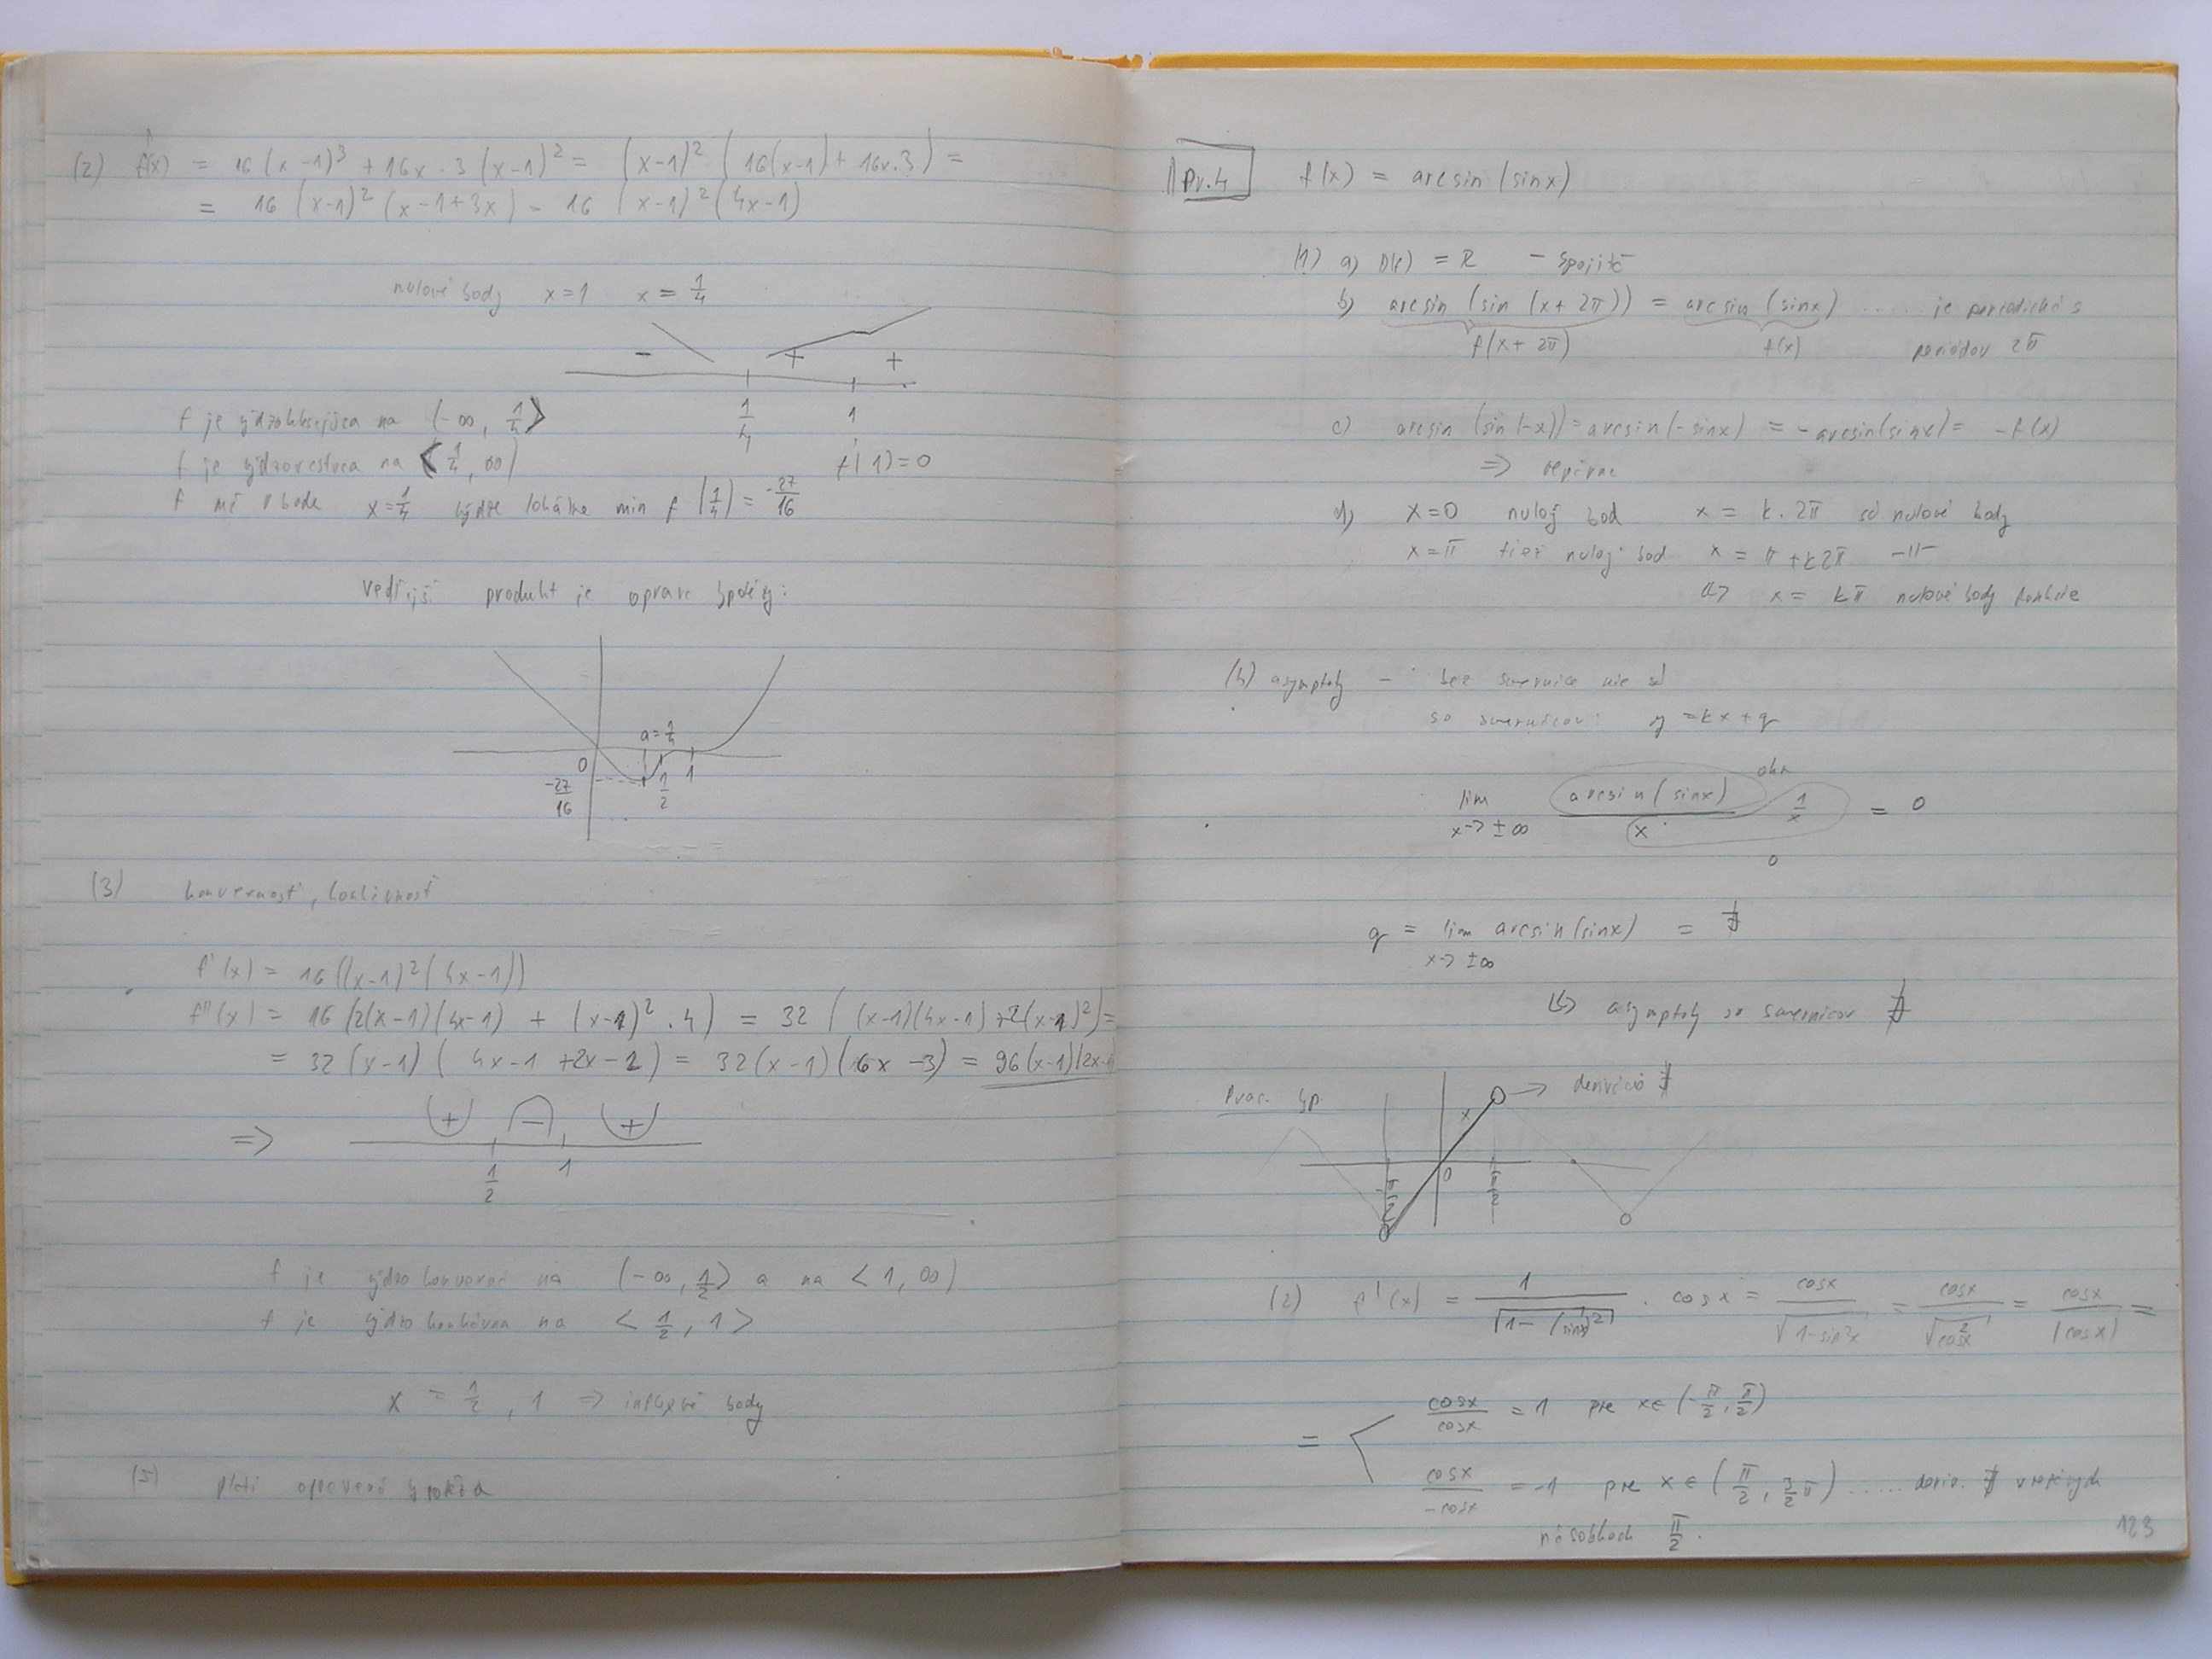 (2) f'(x) = 16(x-1)³ + 16x·3(x-1)² = (x-1)² (16(x-1) + 16x.3) =
= 16(x-1)²(x-1+3x) = 16 (x-1)²(4x-1)
nulové body x=1 x=1/4
- + +
1/4 1
f je rýdzoklesajúca na (-∞, 1/4>
f je rýdzorastuca na <1/4, ∞) f'(1)=0
f má v bode x=1/4 rýdze lokálne min f(1/4) = -27/16
vedľajší produkt je oprava hypotézy:
a=1/4
0 1/2 1
-27/16
(3) konvexnosť, konkávnosť
f'(x) = 16((x-1)²(4x-1))
f''(x) = 16(2(x-1)(4x-1) + (x-1)².4) = 32((x-1)(4x-1)+2(x-1)²) =
= 32(x-1)(4x-1+2x-2) = 32(x-1)(6x-3) = 96(x-1)(2x-1
=> + - +
1/2 1
f je rýdzo konvexná na (-∞, 1/2> a na <1, ∞)
f je rýdzo konkávna na <1/2, 1>
x = 1/2, 1 => inflexné body
(5) platí opravená hypotéza
Pr.4 f(x) = arcsin(sinx)
(1) a) D(f) = R - spojitá
b) arcsin(sin(x+2π)) = arcsin(sinx) ..... je periodická s
f(x+2π) f(x) periódou 2π
c) arcsin(sin(-x)) = arcsin(-sinx) = -arcsin(sinx) = -f(x)
=> nepárna
d) x=0 nulový bod x = k.2π sú nulové body
x=π tiež nulový bod x = π+k2π -11-
x = kπ nulové body funkcie
(4) asymptoty - bez smernice nie sú
so smernicou: y = kx+q
ohr
lim x→±∞ arcsin(sinx)/x 1/x = 0
0
q = lim x→±∞ arcsin(sinx) = ∄
asymptoty so smernicou ∄
Prac. hyp. x → derivácia ∄
-π/2 0 π/2
(2) f'(x) = 1/√(1-(sinx)²) · cosx = cosx/√(1-sin²x) = cosx/√(cos²x) = cosx/|cosx| =
= cosx/cosx = 1 pre x∈(-π/2, π/2)
cosx/-cosx = -1 pre x∈(π/2, 3/2π) ..... deriv. ∄ v
násobkoch π/2.
123